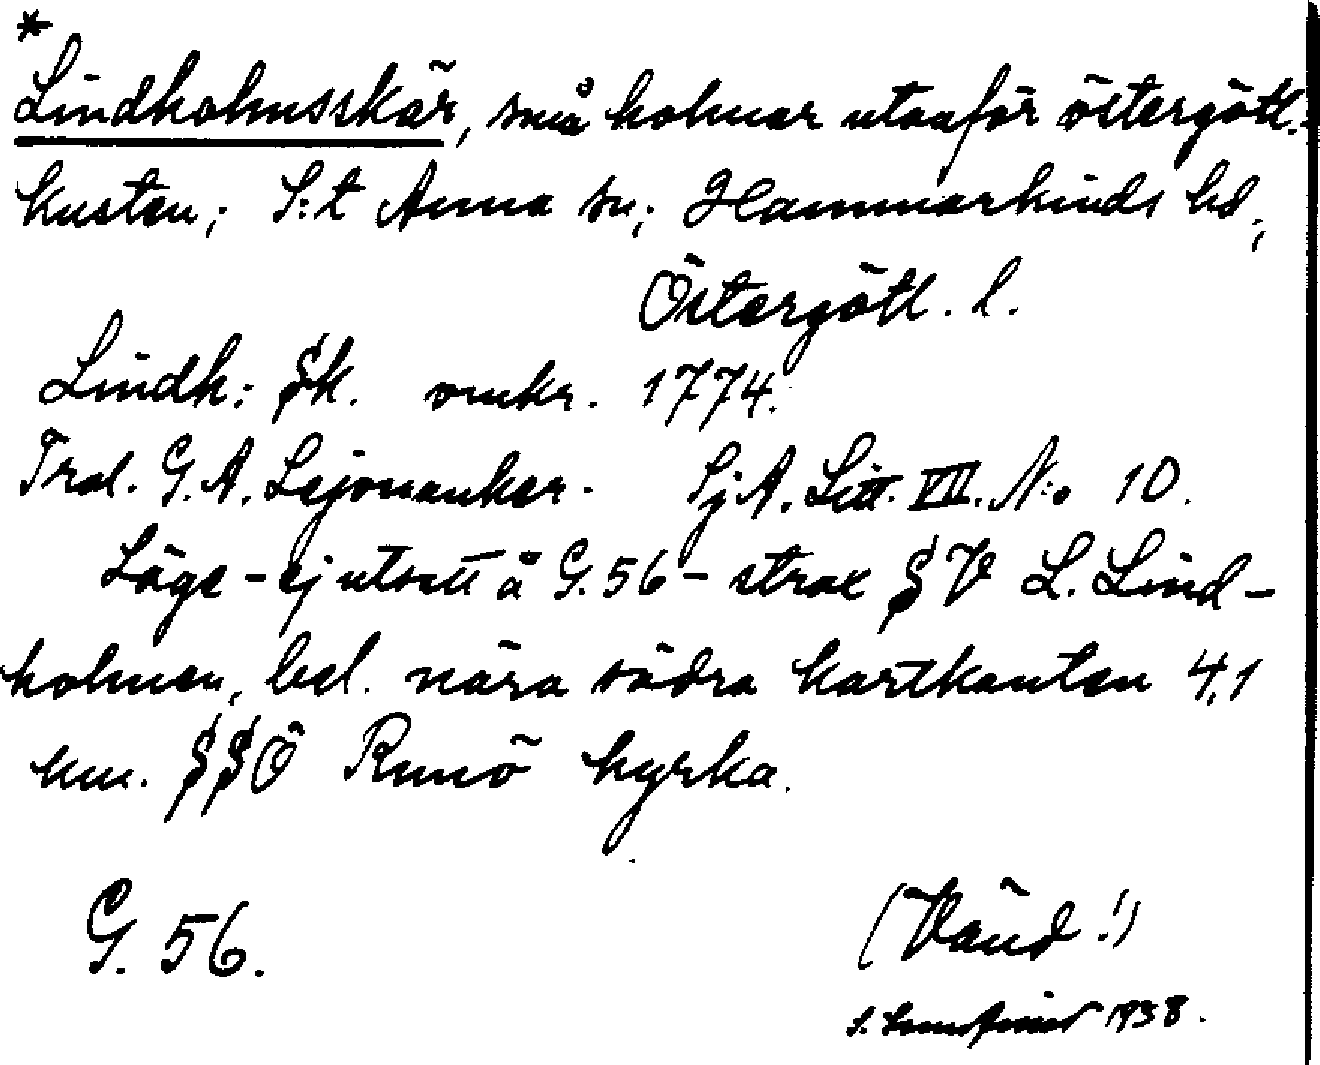 *
Lindholmsskär, små holmar utanför östergötl.
kusten; S:t Anna sn; Hammarkinds hd,
Östergötl. l.
Lindh: Sk. omkr. 1774.
Trol. G.A. Lejonanker. SjA. Litt. VII. N:o 10.
Läge - ej utsatt å G.56 - strax SV L. Lind-
holmen, bel. nära södra kartkanten 4,1
km. SSÖ Rönö kyrka.
G. 56.
(Vänd!)
S. 1938.